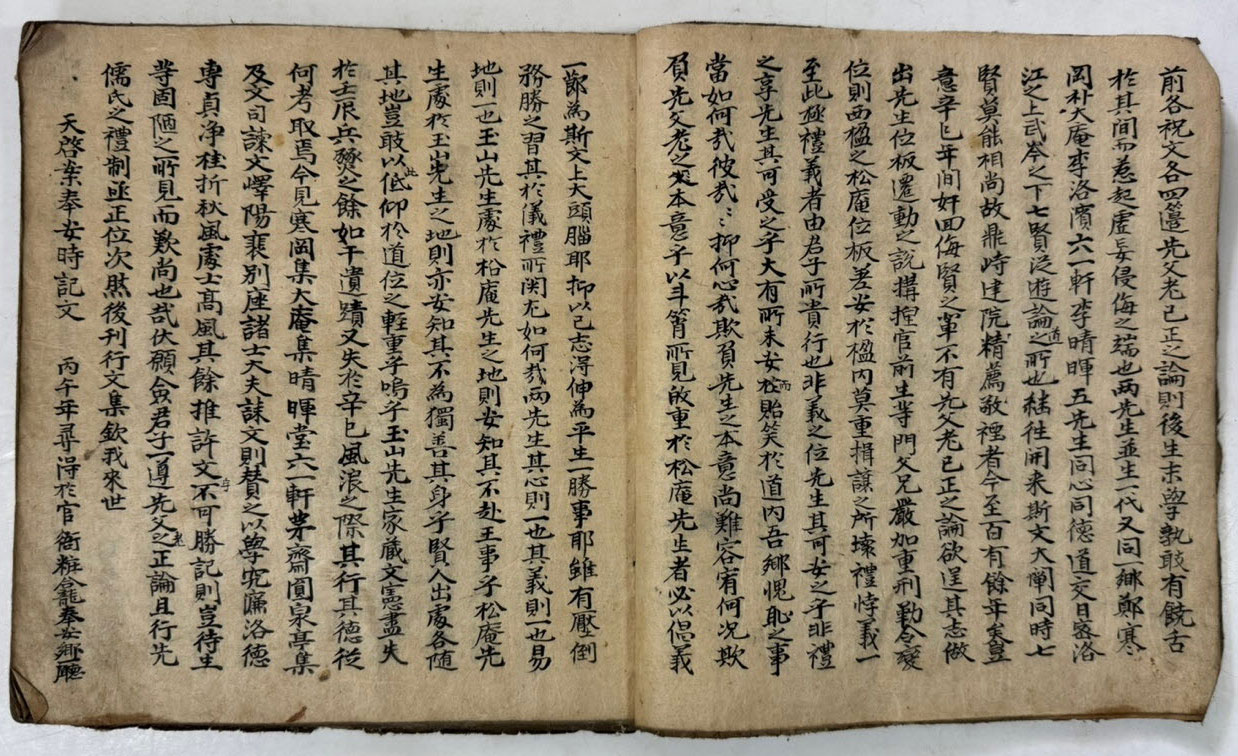 前各祝文各四籩先父老已正之論則後生末學孰敢有饒舌
於其間而惹起虛妄侵侮之端也兩先生並生一代又同一鄉鄭寒
岡朴大庵李洛濱六一軒李晴暉五先生同心同德道交日密洛
江之上武岺之下七賢泛遊論道之所也繼往開来斯文大闡同時七
賢莫能相尚故鼎峙建院精薦敬禋者今至百有餘年矣豈
意辛巳年間奸回侮賢之輩不有先父老已正之論欲逞其志做
出先生位板遷動之說搆捏官前生等門父兄嚴加重刑勤令変
位則西楹之松庵位板差安於楹内莫重揖讓之所壞禮悖義一
至此極禮義者由君子所貴行也非義之位先生其可安之乎非禮
之享先生其可受之乎大有所未安而貽笑於道内吾鄉愧恥之事
當如何哉彼哉〻抑何心哉欺負先生之本意尚難容宥何况欺
負先父老之本意乎以斗筲所見敀重於松庵先生者必以倡義
一節為斯文上大頭腦耶抑以已志淂伸為平生一勝事耶雖有壓倒
務勝之習其於儀禮所関尤如何哉兩先生其心則一也其義則一也易
地則一也玉山先生處於松庵先生之地則安知其不赴王事乎松庵先
生處於玉山先生之地則亦安知其不為獨善其身乎賢人出處各隨
其地豈敢以此低仰於道位之軽重乎嗚乎玉山先生家蔵文憲盡失
於壬辰兵燹之餘如干遺蹟又失於辛巳風浪之際其行其德從
何考取焉今見寒岡集大庵集晴暉堂六一軒茅齋圓泉亭集
及文司諫文嶧陽裵別座諸士大夫誄文則賛之以學究濂洛德
專貞浄桂折秋風處士髙風其餘推許文字不可勝記則豈待生
等固陋之所見而歎尚也哉伏願僉君子一遵先父老之正論且行先
儒氏之禮制亟正位次然後刊行文集欽我來世
天啓案奉安時記文　丙午年尋淂於官衙粧龕奉安鄉廳